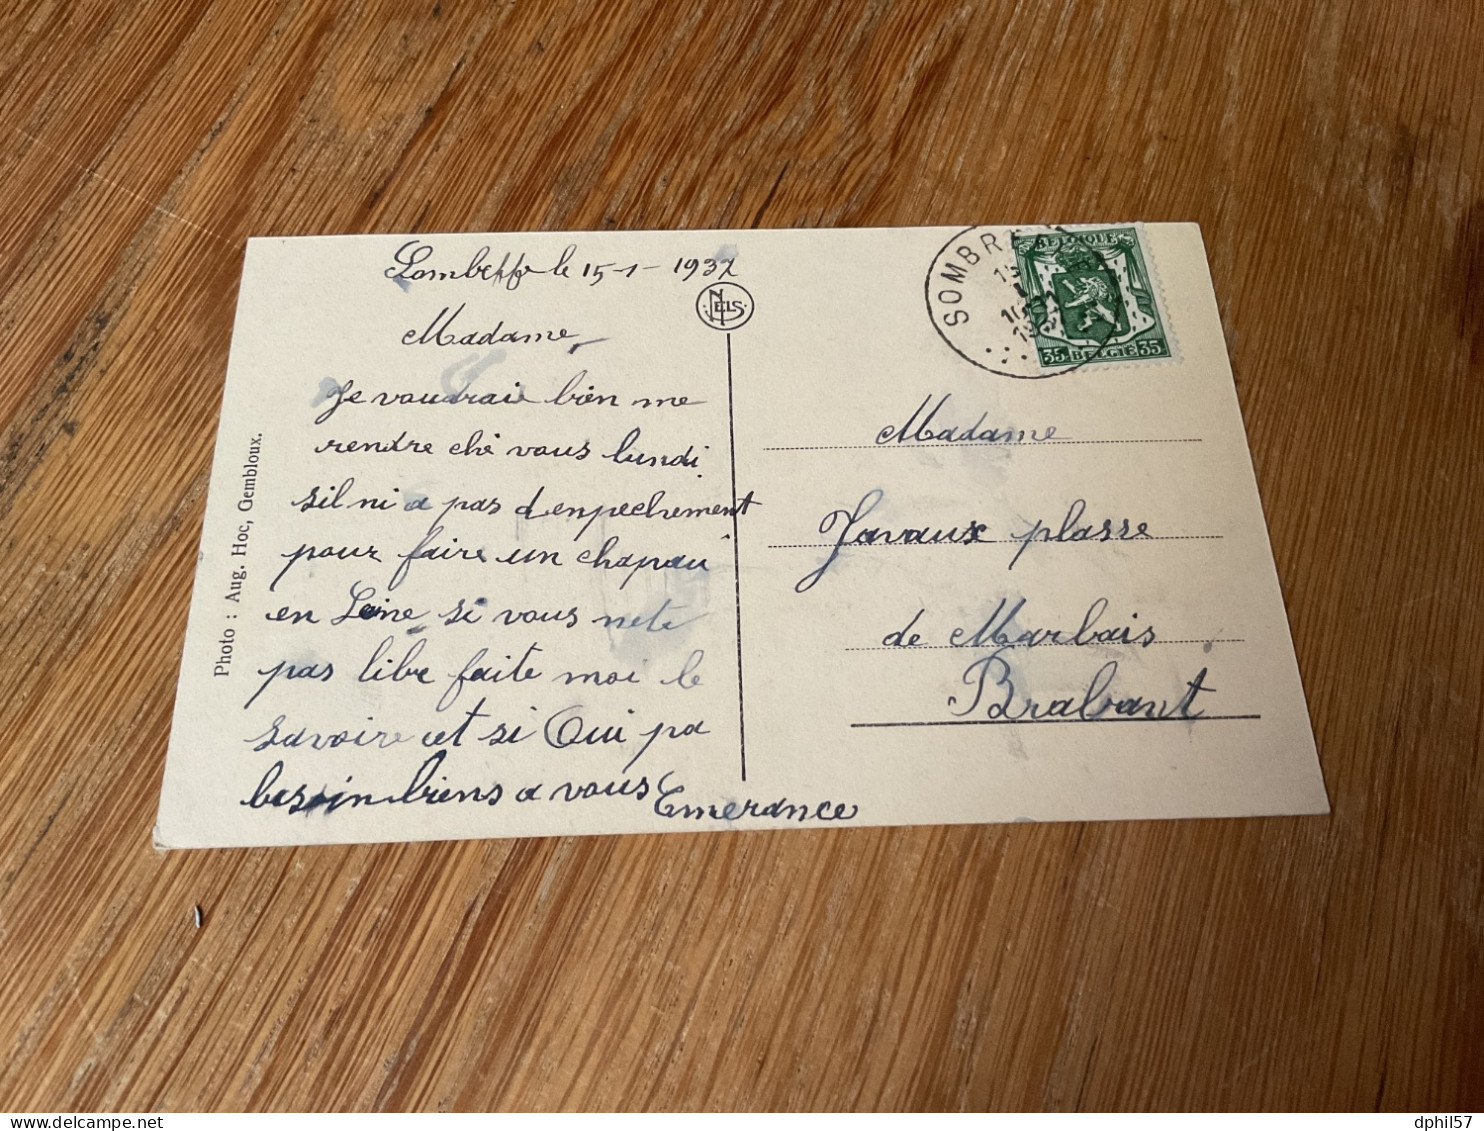 le 15-1-1937
Madame
Je voudrais bien me
rendre ché vous lundi
sil ni a pas denpechement
pour faire un chapau
en Laine si vous nete
pas libre faite moi le
savoire et si Oui pa
besoin biens a vous Emerance
Photo : Aug. Hoc, Gembloux.
NELS
SOMBR
BELGIQUE
35 BELGIE 35
Madame
Javaux plasse
de Marbais
Brabant
dphil57